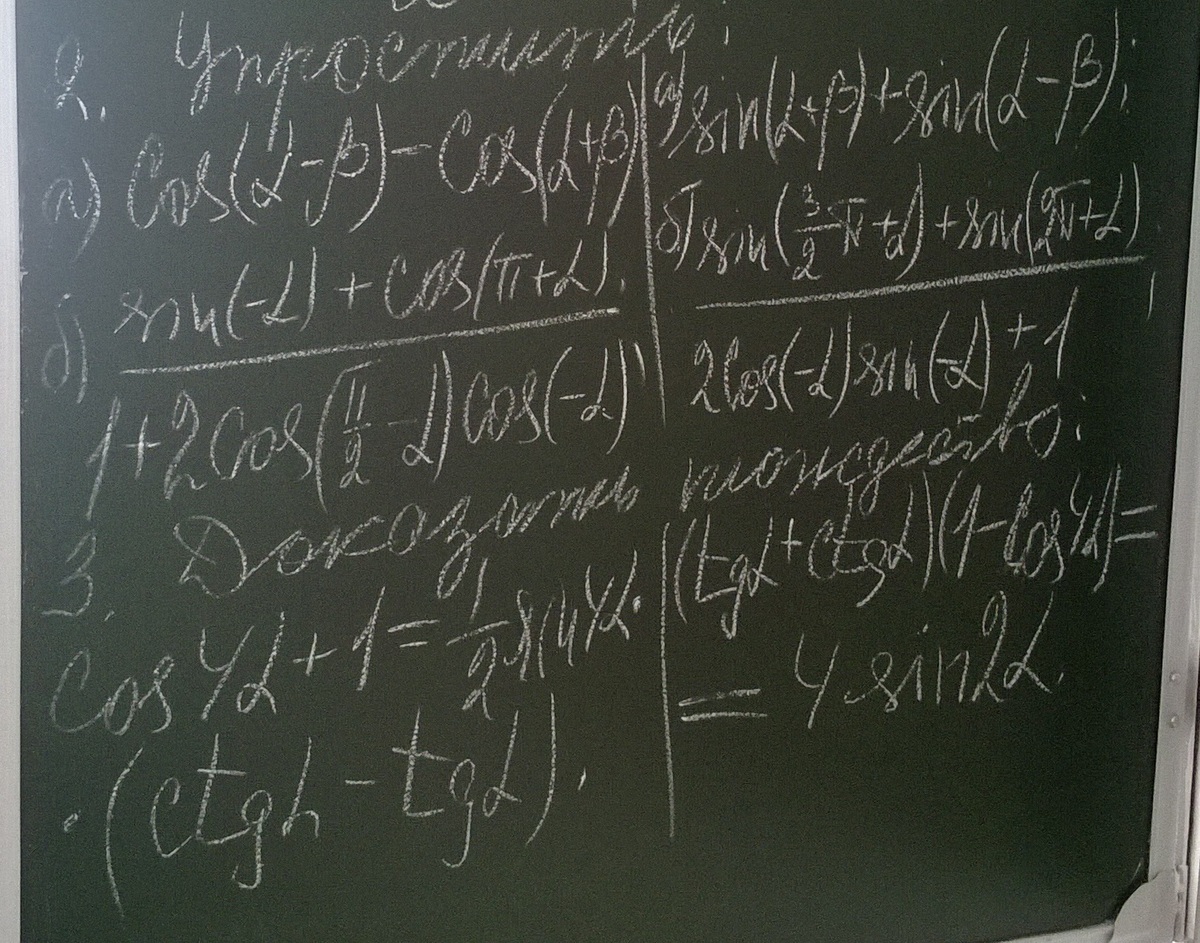 2. Упростить:
а) cos(α-β) - cos(α+β)
б) sin(-α) + cos(π+α).
1+2cos(π/2 - α)cos(-α)
а) sin(α+β)+sin(α-β).
б) sin(3/2 π + α) + sin(2π+α)
2cos(-α)sin(-α) + 1
3. Доказать тождество:
cos4α + 1 = 1/2 sin4α·
·(ctgα - tgα).
(tgα + ctgα)(1-cos4α) =
= 4 sin2α.